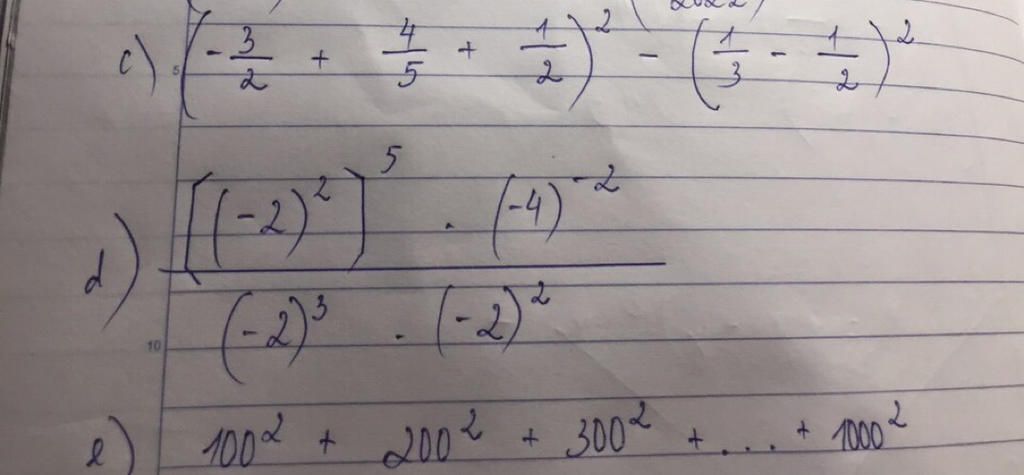 2022)
c) (-3/2 + 4/5 + 1/2)² - (1/3 - 1/2)²
5
d) [(-2)²]⁵ . (-4)⁻²
(-2)³ . (-2)²
10
e) 100² + 200² + 300² + .... + 1000²